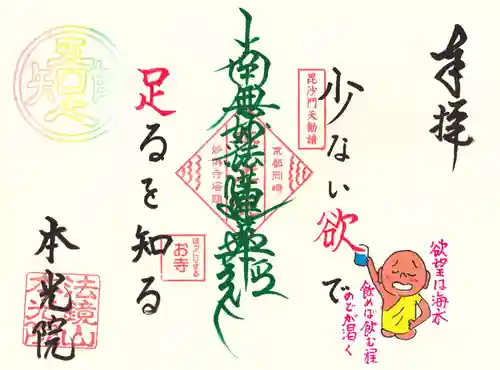 奉拝
毘沙門天勧請
少ない欲で
欲望は海水
飲めば飲む程
のどが渇く
南無妙法蓮華経
京都岡崎
妙傳寺塔頭
足るを知る
お寺
吾唯足知
本光院
法鏡山
本光院